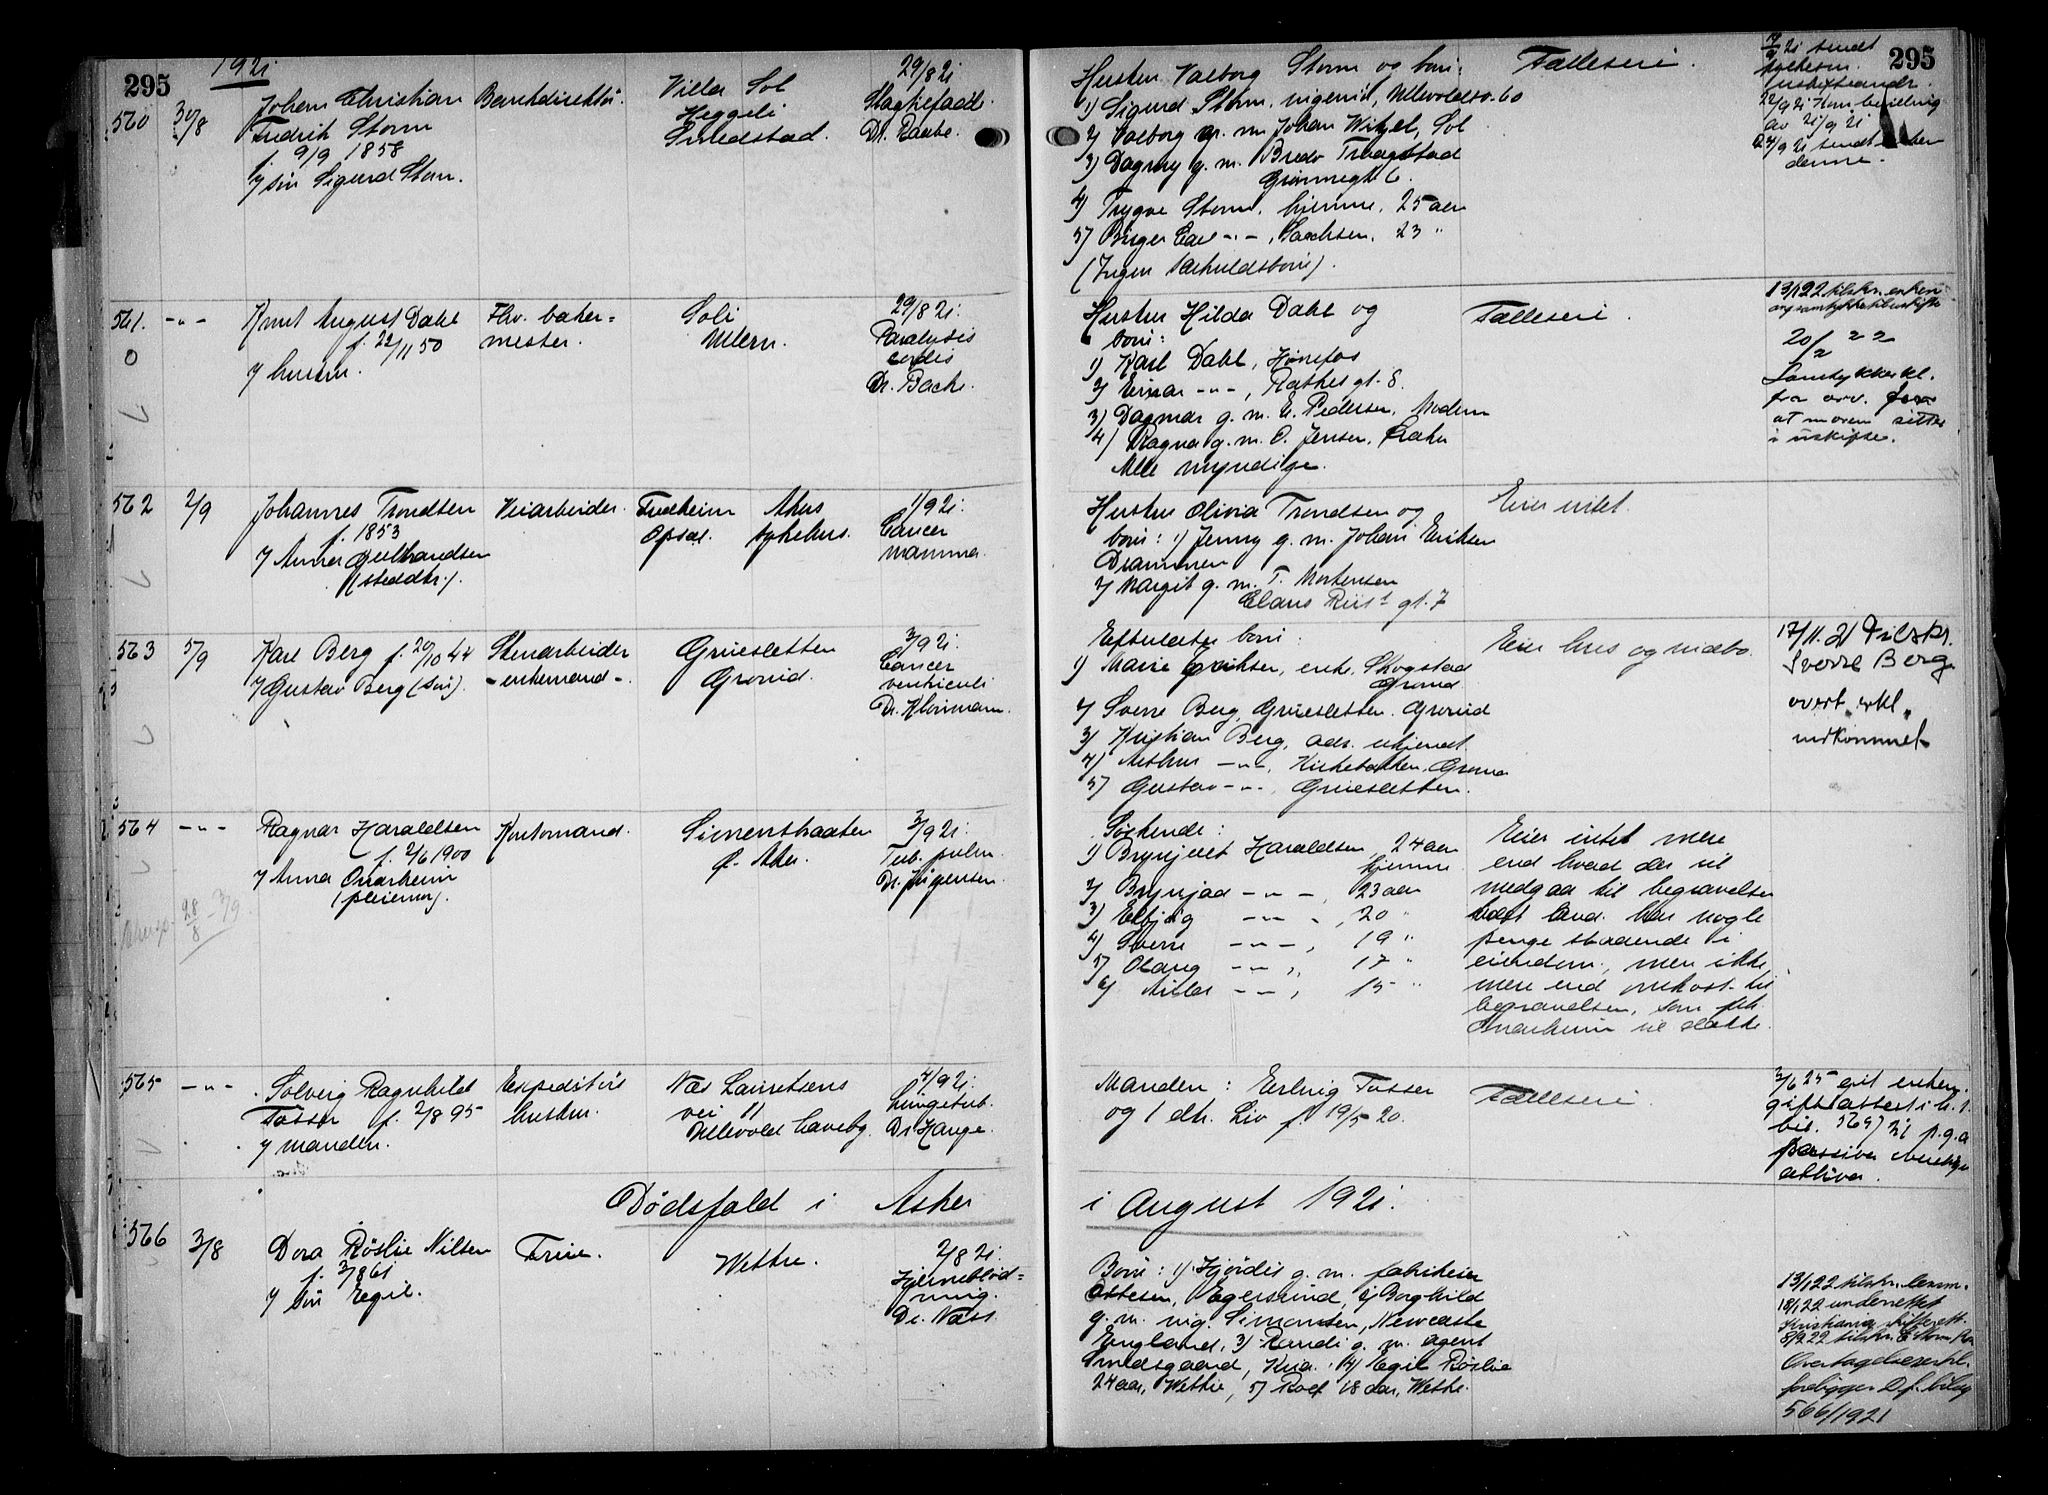 295
1921
560
30/8
Johan Christian
Fredrik Storm
f. 9/9 1858
v/ søn Sigurd Storm.
Bankdirektør.
Villa Sol
Heggeli
Smedstad.
29/8 21
Slagtilfælde.
Dr. Raabe.
561.
-"-
Knut August Dahl
f. 22/11 50
v/ hustru.
Fhv. baker=
mester.
Soli
Ullern.
29/8 21.
Paralysis
cordis
Dr. Bache.
562
2/9
Johannes Trondsen
f. 1853
v/ Anna Gulbrandsen
(steddtr.).
Veiarbeider.
Fredheim
Opsal.
Akers
sykehus.
1/9 21.
Cancer
mamma.
563
5/9
Karl Berg f. 20/10 44
v/ Gustav Berg (søn).
Stenarbeider
- enkemand -
Gruesletten
Grorud.
3/9 21.
Cancer
ventriculi
564
-"-
Ragnar Haraldsen
f. 2/6 1900
v/ Anna Onarheim
(pleiemor).
28/8 - 3/9.
Kontormand.
Ø. Aker.
3/9 21.
Tub. pulm.
Dr. Jürgensen.
565
-"-
Solveig Ragnhild
Fosser f. 2/8 95
v/ manden.
Expeditørs
hustru.
Nils Lauritsens
vei 11
Ullevold haveby.
4/9 21.
Lungetub.
Dr. Hauge.
Dødsfald i Asker
566
3/8
Dora Røslie Nilsen
f. 3/8 61
v/ søn Egil.
Frue.
Wettre.
2/8 21.
Hjerneblød=
ning.
Dr. Næss.
295
Hustru Valborg Storm og børn:
1) Sigurd Storm, ingeniør, Ullevoldsv. 60
2) Valborg g. m. Johan Witzel, Sol
3) Dagny g. m. Bredo Traagstad
Grønnegt. 6.
4) Trygve Storm, hjemme, 25 aar
5) Birger Carl -"-, Sachsen, 23 "
(Ingen særkuldsbørn).
Fælleseie.
22/9 21 Kom. bevilling
av 21/9 21
24/9 21 sendt enken
denne.
Hustru Hilda Dahl og
børn:
1) Karl Dahl, Hønefos
2) Einar -"-, Rathkes gt. 8.
3) Dagmar g. m. E. Pedersen, Modum
4) Ragna g. m. O. Jensen,
Alle myndige.
Fælleseie.
13/1 22 tilskr. enken
20/2 22
Samtykkeerkl.
fra arv. for
at moren sitter
i uskifte.
Hustru Olivia Trondsen og
børn: 1) Jenny g. m. Johan Eriksen
Drammen
2) Margit g. m. T. Mortensen
Claus Riis's gt. 7
Eier intet.
Efterlatte børn:
1) Marie Eriksen, enke, Skogstad
Grorud
2) Sverre Berg, Gruesletten, Grorud
3) Kristian Berg, adr. ukjendt
4) Arthur -"-, Kirkebakken, Grorud
5) Gustav -"-, Gruesletten.
Eier hus og indbo.
17/11. 21 Tilskr.
Sverre Berg
overt. erkl.
indkommet
Søskende:
1) Brynjulf Haraldsen, 24 aar
hjemme
2) Brynjar -"-, 23 aar
3) Elbjørg -"-, 20 "
4) Sverre -"-, 19 "
5) Olaug -"-, 17 "
6) -"-, 15 "
Eier intet mere
end hvad der vil
medgaa til begravelsen
Avd. har nogle
penge staaende i
eiendom, men ikke
mere end omkost. til
begravelsen, som frk.
Onarheim vil dække.
Manden: Erling Fosser
og 1 dtr. Liv f. 19/5 20.
Fælleseie.
3/6 25 git enkem.
giftsattest i h. t.
bil. 565/21 p. g. a.
passiva overstiger
aktiva.
i August 1921.
Børn: 1) Hjørdis g. m. fabrikeier
Ottesen, Egersund, 2) Borghild
g. m. ing. Simonsen, Newcastle
England, 3) Randi g. m. agent
Smedsgaard, Kria. 4) Egil Røslie
24 aar, Wettre, 5) Rolf 18 aar, Wettre.
18/1 22 underrettet
Kristiania skifterett.
Overtagelseserkl.
foreligger D. f. bilag
566/1921